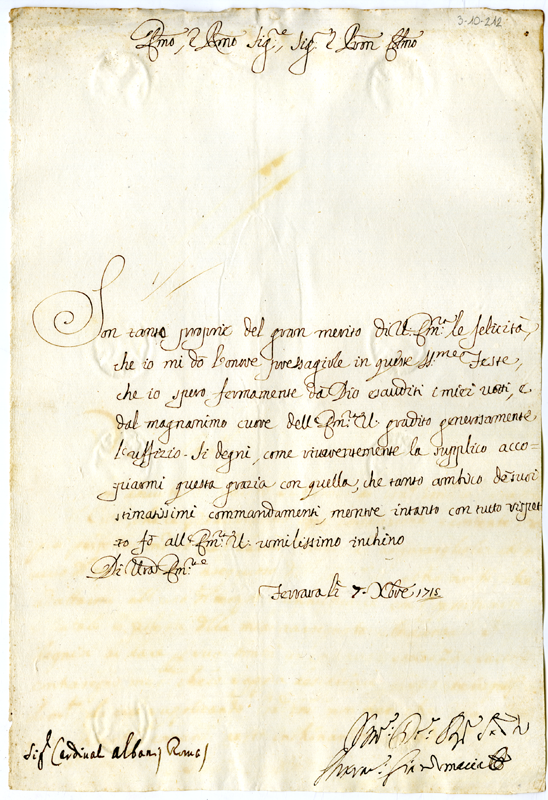 3-10-212
Emo, e Rmo Sig.re, Sig.r e Pron Cmo
Son tanto proprie del gran merito di V. Em.za le felicità,
che io mi dò l'onore presagirle in queste SS.me Feste,
che io spero fermamente da Dio esauditi i miei voti, e
dal magnanimo cuore dell'Em.za V. gradito generosamente
l'uffizio. Si degni, come riverentemente la supplico acco=
piarmi questa grazia con quella, che tanto ambico de suoi
stimatissimi commandamenti, mentre intanto con tutto rispet
to fò all'Em.za V. umilissimo inchino
Di Vra Em.za
Ferrara li 7. Xbre 1715
Sig.r Cardinal Albani Roma